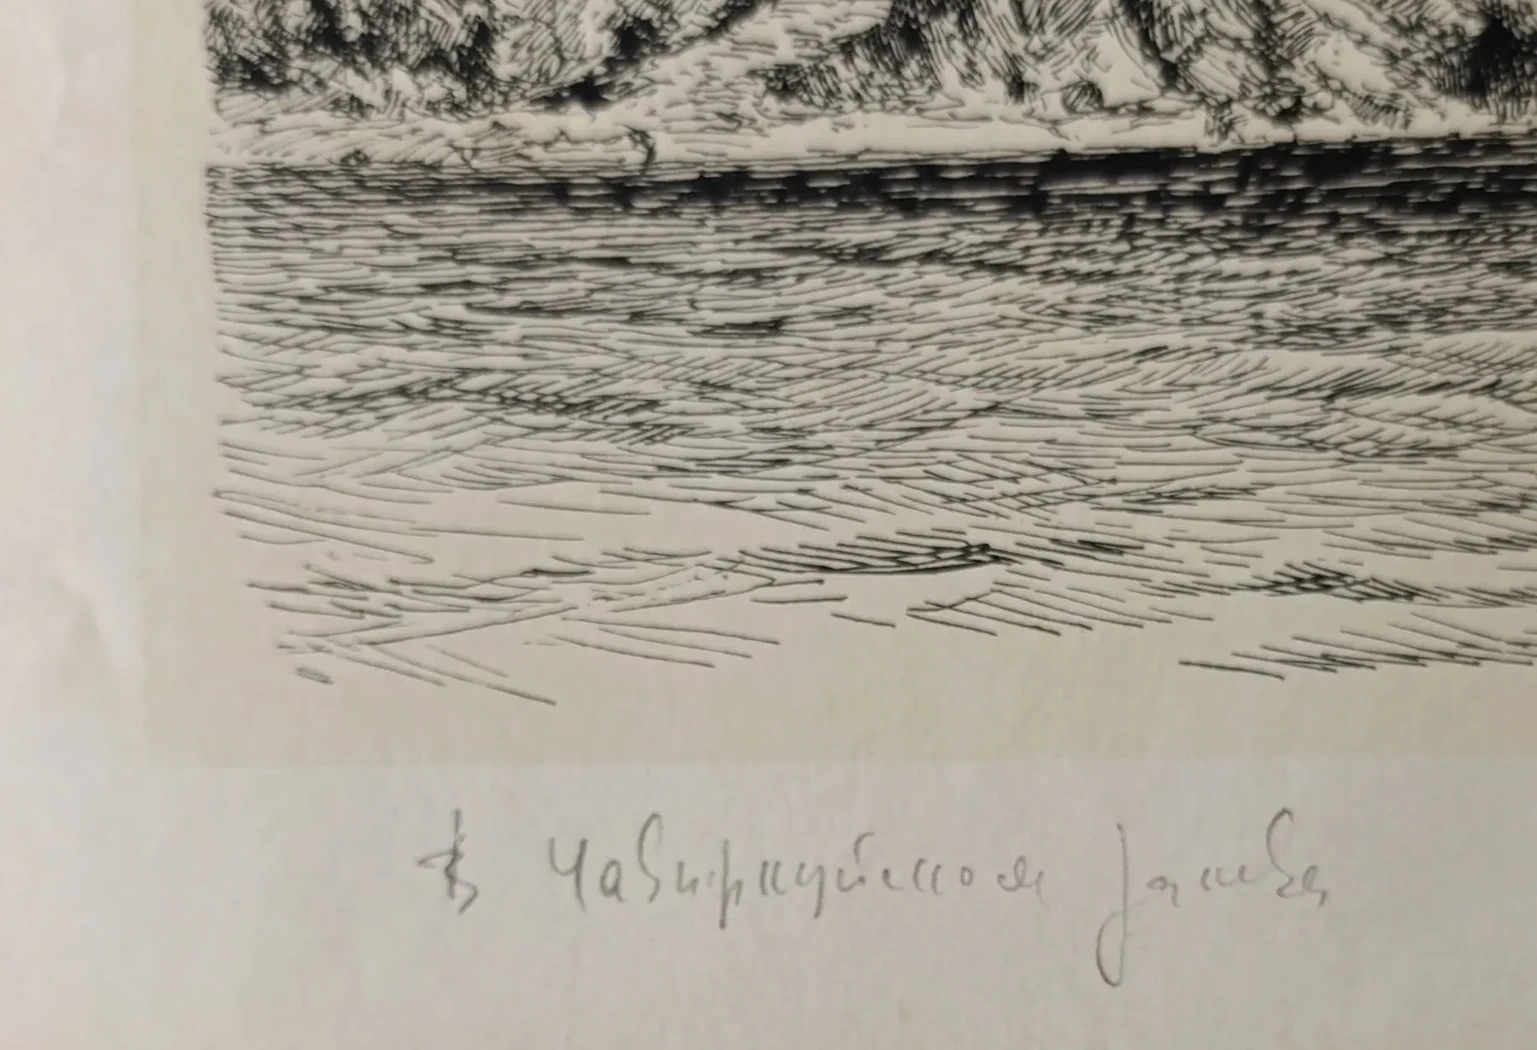 В Чавиркуйском заливе